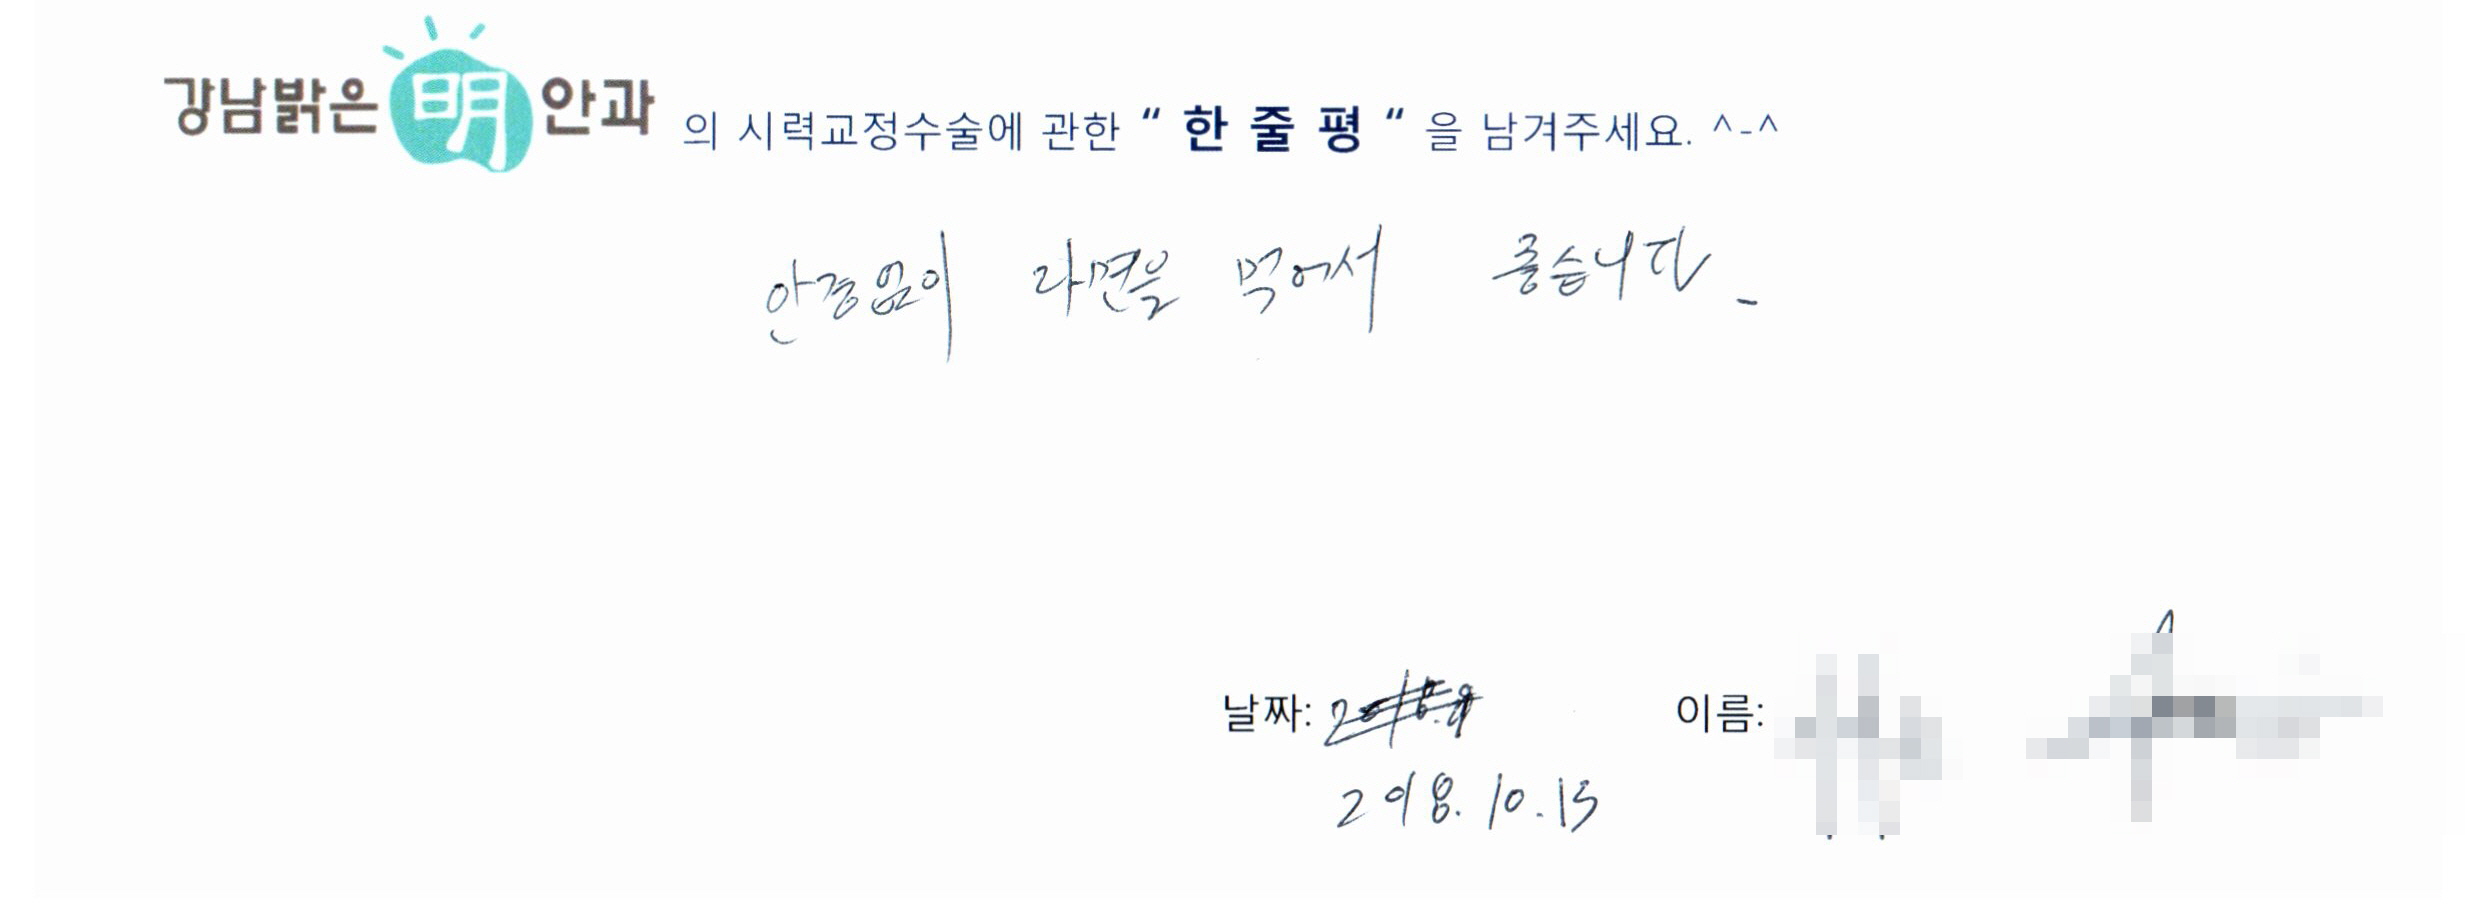 강남밝은 明 안과 의 시력교정수술에 관한 “ 한 줄 평 “ 을 남겨주세요. ^-^
안경없이 라면을 먹어서 좋습니다.
날짜: 이름:
2018. 10. 15